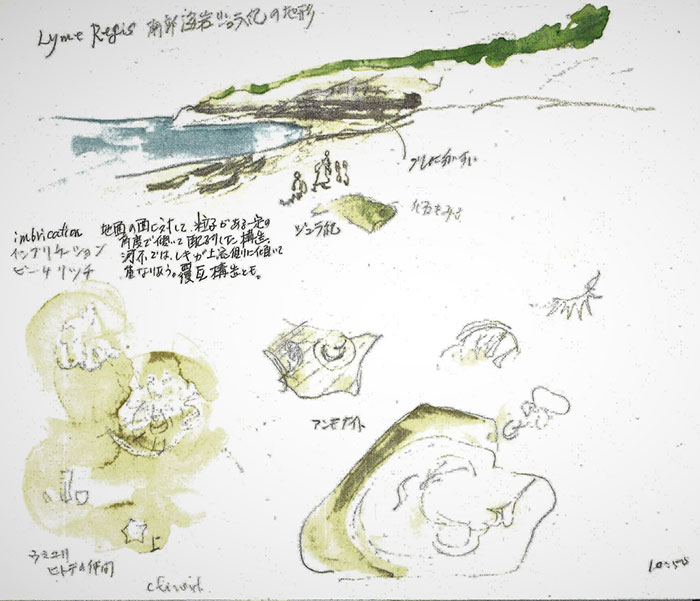 Lyme Regis 南部海岸ジュラ紀の地形
ジュラ紀
化石をみる
imbrication
インブリケーション
ビーチリッヂ
地面の面に対して、粒子がある一定の
角度で傾いて配列した構造。
河床では、レキが上流側に傾いて
重なりあう。覆瓦構造とも。
アンモナイト
ウミユリ
ヒトデの仲間